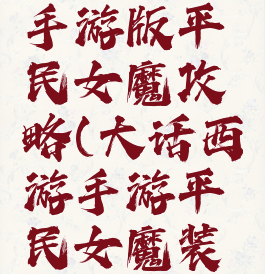 手游版平
民女魔攻
略(大话西
游手游平
民女魔装